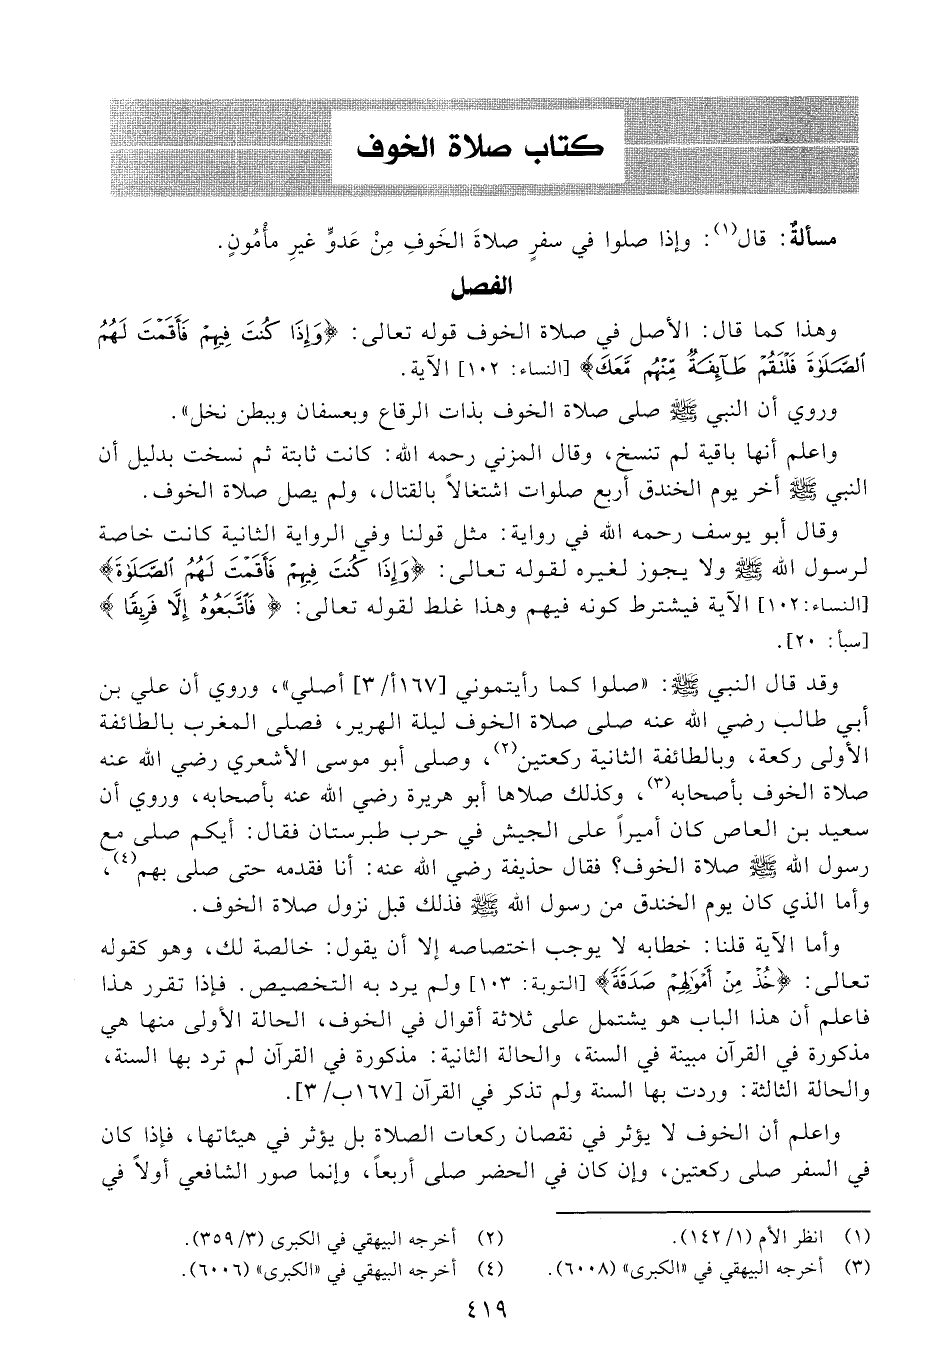 كتاب صلاة الخوف
مسألةٌ: قال(١): وإذا صلوا في سفرٍ صلاةَ الخَوفِ مِنْ عَدوٍّ غيرِ مأْمُونٍ.
الفصل
وهذا كما قال: الأصل في صلاة الخوف قوله تعالى: ﴿وَإِذَا كُنتَ فِيهِمْ فَأَقَمْتَ لَهُمُ
ٱلصَّلَوٰةَ فَلْتَقُمْ طَآئِفَةٌ مِّنْهُم مَّعَكَ﴾ [النساء: ١٠٢] الآية.
وروي أن النبي ﷺ صلى صلاة الخوف بذات الرقاع وبعسفان وببطن نخل».
واعلم أنها باقية لم تنسخ، وقال المزني رحمه الله: كانت ثابتة ثم نسخت بدليل أن
النبي ﷺ أخر يوم الخندق أربع صلوات اشتغالاً بالقتال، ولم يصل صلاة الخوف.
وقال أبو يوسف رحمه الله في رواية: مثل قولنا وفي الرواية الثانية كانت خاصة
لرسول الله ﷺ ولا يجوز لغيره لقوله تعالى: ﴿وَإِذَا كُنتَ فِيهِمْ فَأَقَمْتَ لَهُمُ ٱلصَّلَوٰةَ﴾
[النساء:١٠٢] الآية فيشترط كونه فيهم وهذا غلط لقوله تعالى: ﴿ فَٱتَّبَعُوهُ إِلَّا فَرِيقًا ﴾
[سبأ: ٢٠].
وقد قال النبي ﷺ: «صلوا كما رأيتموني [١٦٧أ/ ٣] أصلي»، وروي أن علي بن
أبي طالب رضي الله عنه صلى صلاة الخوف ليلة الهرير، فصلى المغرب بالطائفة
الأولى ركعة، وبالطائفة الثانية ركعتين(٢)، وصلى أبو موسى الأشعري رضي الله عنه
صلاة الخوف بأصحابه(٣)، وكذلك صلاها أبو هريرة رضي الله عنه بأصحابه، وروي أن
سعيد بن العاص كان أميراً على الجيش في حرب طبرستان فقال: أيكم صلى مع
رسول الله ﷺ صلاة الخوف؟ فقال حذيفة رضي الله عنه: أنا فقدمه حتى صلى بهم(٤)،
وأما الذي كان يوم الخندق من رسول الله ﷺ فذلك قبل نزول صلاة الخوف.
وأما الآية قلنا: خطابه لا يوجب اختصاصه إلا أن يقول: خالصة لك، وهو كقوله
تعالى: ﴿خُذْ مِنْ أَمْوَٰلِهِمْ صَدَقَةً﴾ [التوبة: ١٠٣] ولم يرد به التخصيص. فإذا تقرر هذا
فاعلم أن هذا الباب هو يشتمل على ثلاثة أقوال في الخوف، الحالة الأولى منها هي
مذكورة في القرآن مبينة في السنة، والحالة الثانية: مذكورة في القرآن لم ترد بها السنة،
والحالة الثالثة: وردت بها السنة ولم تذكر في القرآن [١٦٧ب/ ٣].
واعلم أن الخوف لا يؤثر في نقصان ركعات الصلاة بل يؤثر في هيئاتها، فإذا كان
في السفر صلى ركعتين، وإن كان في الحضر صلى أربعاً، وإنما صور الشافعي أولاً في
(١) انظر الأم (١/ ١٤٢).
(٢) أخرجه البيهقي في الكبرى (٣/ ٣٥٩).
(٣) أخرجه البيهقي في «الكبرى» (٦٠٠٨).
(٤) أخرجه البيهقي في «الكبرى» (٦٠٠٦).
٤١٩